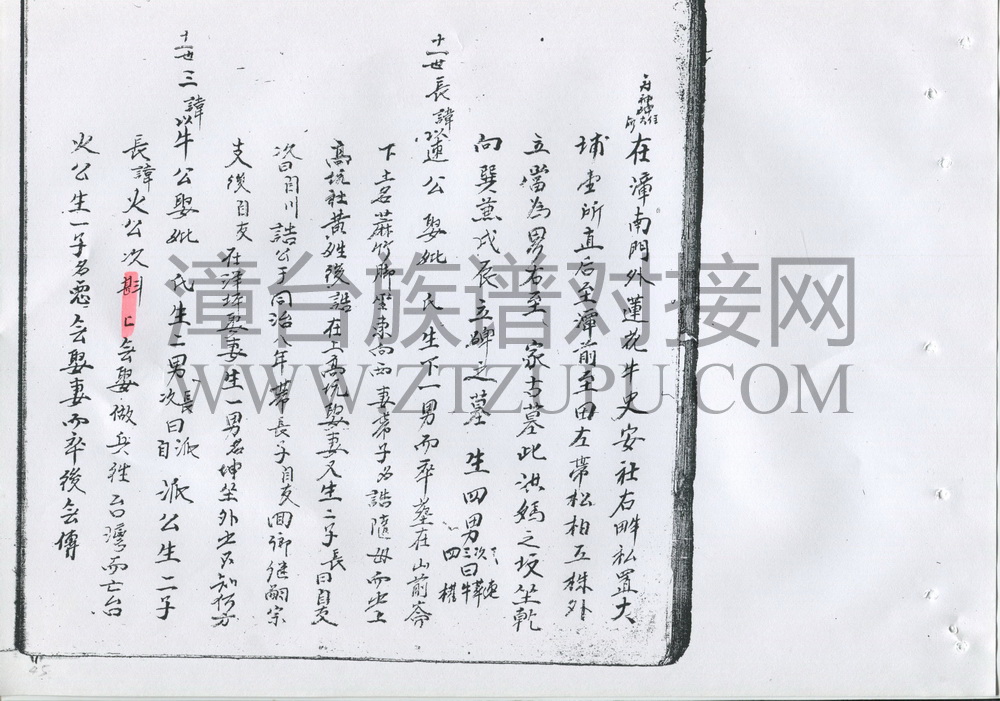 在漳南門外蓮花牛史安社右畔私置大
埔壹所直后至潭前至田左帶松柏五株外
立當為界右至 家古墓此洪媽之坟坐乾
向巽兼戌辰立碑之墓 生四男 次曰 三曰牛 四
十一世長諱以連公娶妣 氏生下一男而卒墓在山前崙
下土名蔴竹脚坐東向西妻帶子名誥隨母而出上
高坑社黄姓後誥在上高坑娶妻又生二子長曰自支
次曰自川 誥公于同治八年帶長子自支回鄉继嗣宗
支後自支在洋坪娶妻生一男名坤坐外出不知何方
十一世三諱以牛公娶妣 氏生二男長曰派次曰自 派公生二子
長諱火公次斟上 無娶 做兵往台灣而亡台
火公生一子名惡 無娶妻而卒後無傳
漳台族谱对接网
WWW.ZTZUPU.COM